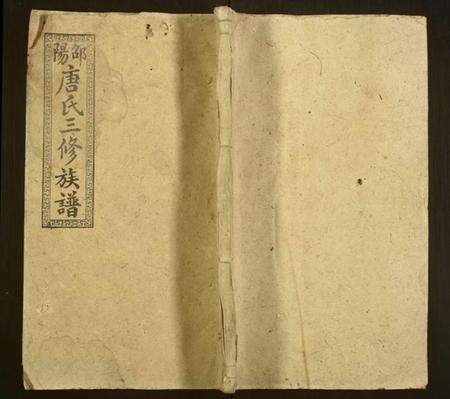 邵陽
唐氏三修族譜